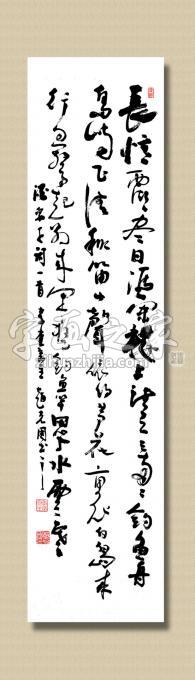 長憶西湖盡日憑闌樓上望三三兩兩釣魚舟
島嶼正清秋笛聲依約蘆花裏白鳥成
行忽驚起別來閒整釣魚竿思入水雲寒
詞一首
字画之家